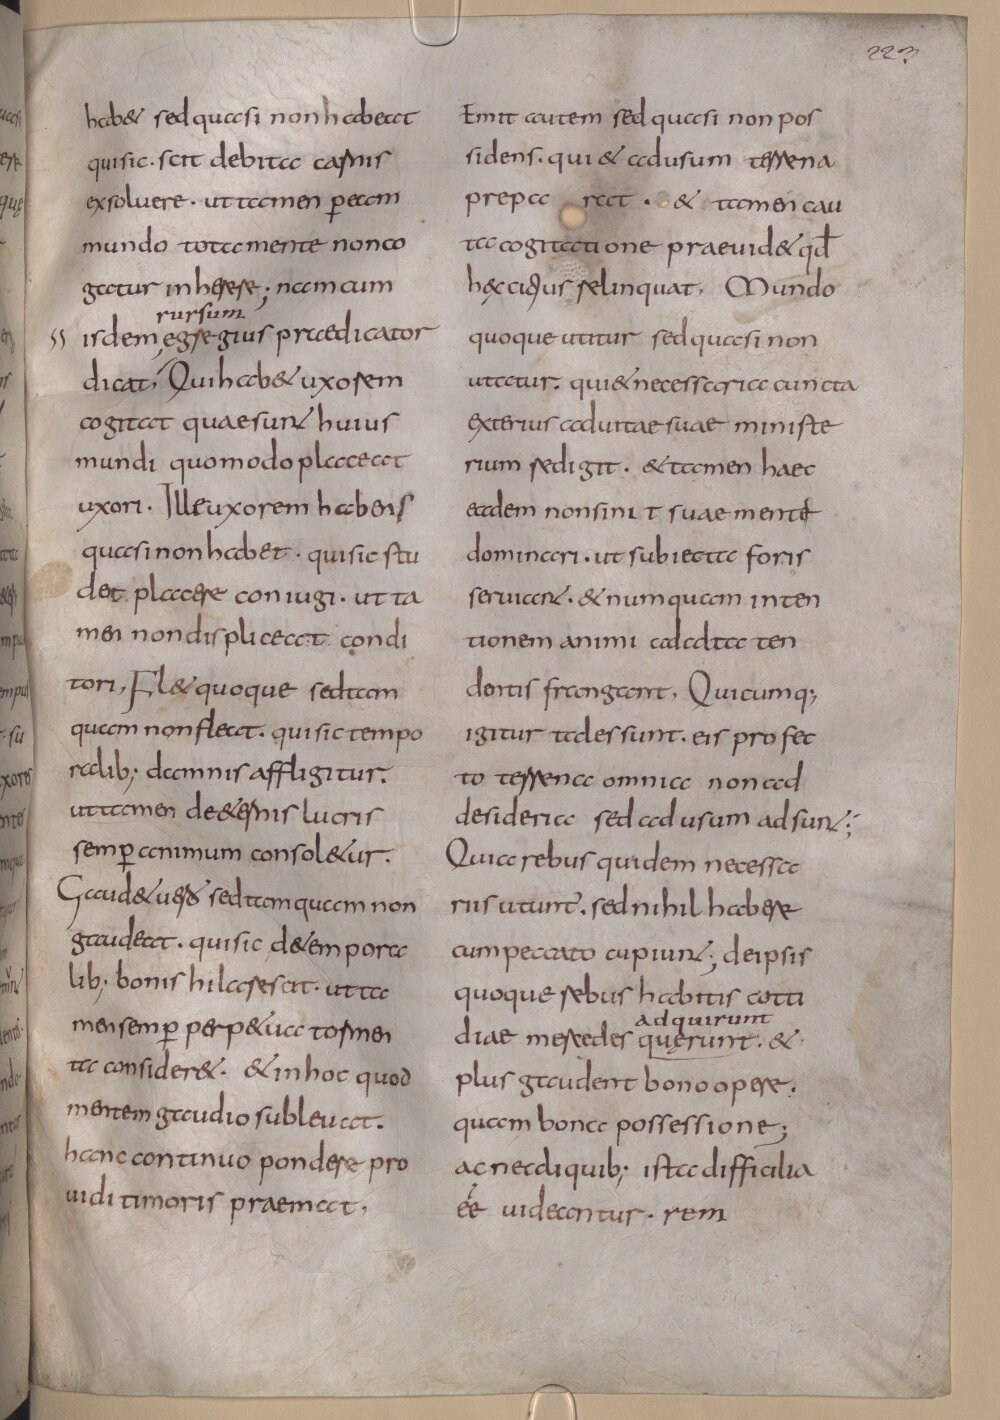 223
hab& sed quasi non habeat
qui sic · scit debita carnis
exsoluere · ut tamen p̲ eam
mundo tota mente non co
gatur inherere; nam cum
rursum
isdem, egregius praedicator
dicat, Qui hab& uxorem
cogitat quae sunt huius
mundi quomodo placeat
uxori · Ille uxorem habens
quasi non habet · qui sic stu
det placere coniugi · ut ta
men non displiceat condi
tori, Fl& quoque sed tam
quam non fleat · qui sic tempo
ralib; damnis affligitur.
ut tamen de &ernis lucris
semp̲ animum consol&ur.
Gaud& uero sed tamquam non
gaudeat · qui sic de temporа
lib; bonis hilarescit · ut ta
men semp̲ perp&ua tormen
ta consider& · & in hoc quod
mentem gaudio subleuat.
hanc continuo pondere pro
uidi timoris praemat,
Emit autem sed quasi non pos
sidens · qui & ad usum terrena
prepa rat · & tamen cau
ta cogitatione praeuid& qd̄
hęc citius relinquat, Mundo
quoque utitur sed quasi non
utatur. qui & necessaria cuncta
exterius ad uitae suae ministe
rium redigit · & tamen haec
eadem non sinit suae mente
dominari · ut subiecta foris
seruiant · & numquam inten
tionem animi ad alta ten
dentis frangant, Quicumq;
igitur tales sunt · eis profec
to terrena omnia non ad
desideria sed ad usum adsunt;
Quia rebus quidem necessa
riis utunt̄ · sed nihil habere
cum peccato cupiunt; de ipsis
quoque rebus habitis coti
adquirunt
diae mercedes querunt · &
plus gaudent bono opere.
quam bona possessione;
ac ne aliquib; ista difficilia
ée uideantur · rem